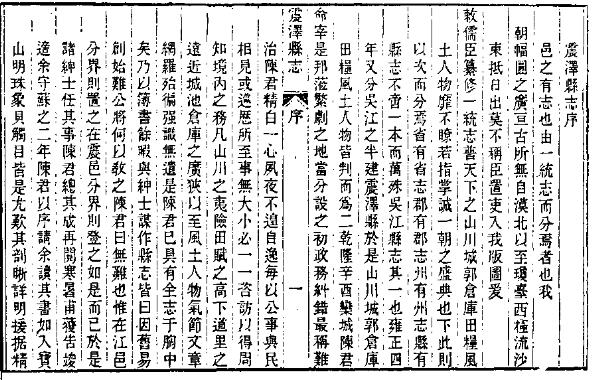 震澤縣志序
邑之有志也由一統志而分焉者也我
朝幅圓之廣亘古所無自漠北以至瓊臺西極流沙
東抵日出莫不稱臣置吏入我版圖爰
敕儒臣纂修一統志舉天下之山川城郭倉庫田糧風
土人物靡不瞭若指掌誠一朝之盛典也下此則
以次而分焉省有省志郡有郡志州有州志縣有
縣志不啻一本而萬殊吳江縣志其一也雍正四
年又分吳江之半建震澤縣於是山川城郭倉庫
田糧風土人物皆判而爲二乾隆辛酉欒城陳君
命宰是邦蒞繁劇之地當分設之初政務紏錯最稱難
震澤縣志 序 一
治陳君精白一心夙夜不遑自逸每以公事與民
相見或巡歷所至事無大小必一一咨訪以得周
知境内之務凡山川之夷險田賦之高下道里之
遠近城池倉庫之廣狹以至風土人物氣節文章
網羅殆徧强識無遺是陳君已具有全志于胸中
矣乃以簿書餘暇與紳士謀作縣志皆曰因舊易
創始難公將何以敎之陳君曰無難也惟在江邑
分界則置之在震邑分界則登之如是而已於是
諸紳士任其事陳君總其成再閱寒暑甫獲告竣
適余守蘇之二年陳君以序請余讀其書如入寶
山明珠象貝觸目皆是尤歎其剖晰詳明援据精